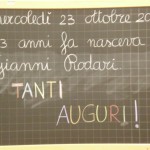 mercoledì 23 ottobre 20
3 anni fa nasceva
gianni Rodari
TANTI
AUGURI!